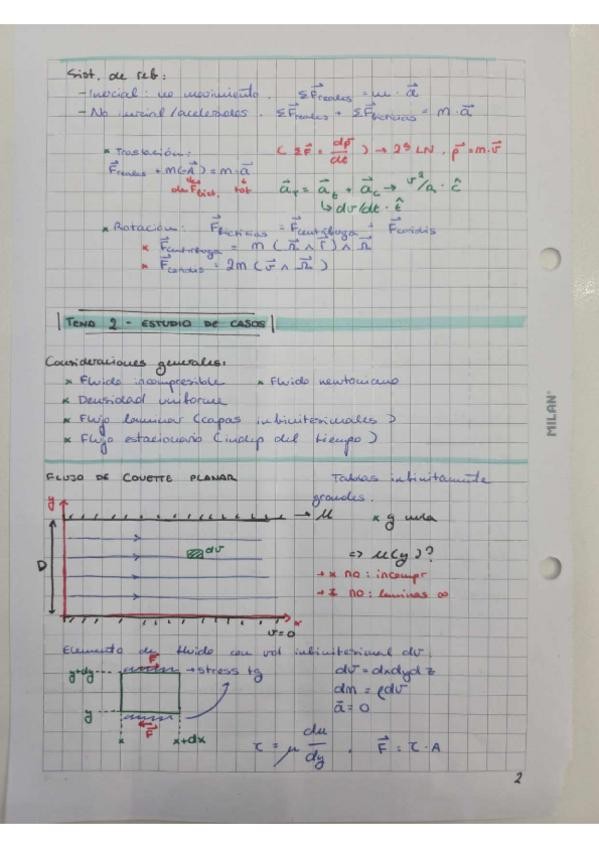 Sist. de ref:
- Inercial: no movimiento. ΣF⃗reales = m · a⃗
- No inercial/acelerados. ΣF⃗reales + ΣF⃗ficticias = m · a⃗
* Traslación: (ΣF⃗ = dp⃗/dt) → 2ª LN. p⃗ = m·v⃗
F⃗reales + m(-A⃗) = m·a⃗
a⃗r = a⃗t + a⃗c → v²/a · ĉ
↳ dv/dt · t̂
* Rotación: F⃗ficticias = F⃗centrífuga + F⃗coriolis
* F⃗centrífuga = m (Ω⃗ ∧ r⃗) ∧ Ω⃗
* F⃗coriolis = 2m (v⃗ ∧ Ω⃗)
TEMA 2 - ESTUDIO DE CASOS
Consideraciones generales:
* Fluido incompresible * Fluido newtoniano
* Densidad uniforme
* Flujo laminar (capas infinitesimales)
* Flujo estacionario (indep del tiempo)
MILAN®
FLUJO DE COUETTE PLANAR Tablas infinitamente
grandes.
y → u * g nula
dv ⇒ u(y)?
D → x no: incompr
→ z no: laminas ∞
x
v=0
Elemento de fluido con vol infinitesimal dv.
F⃗
y+dy → stress tg dv = dxdydz
dm = ρdv
y a⃗ = 0
F⃗
x x+dx τ = μ du/dy , F⃗ = τ · A
2